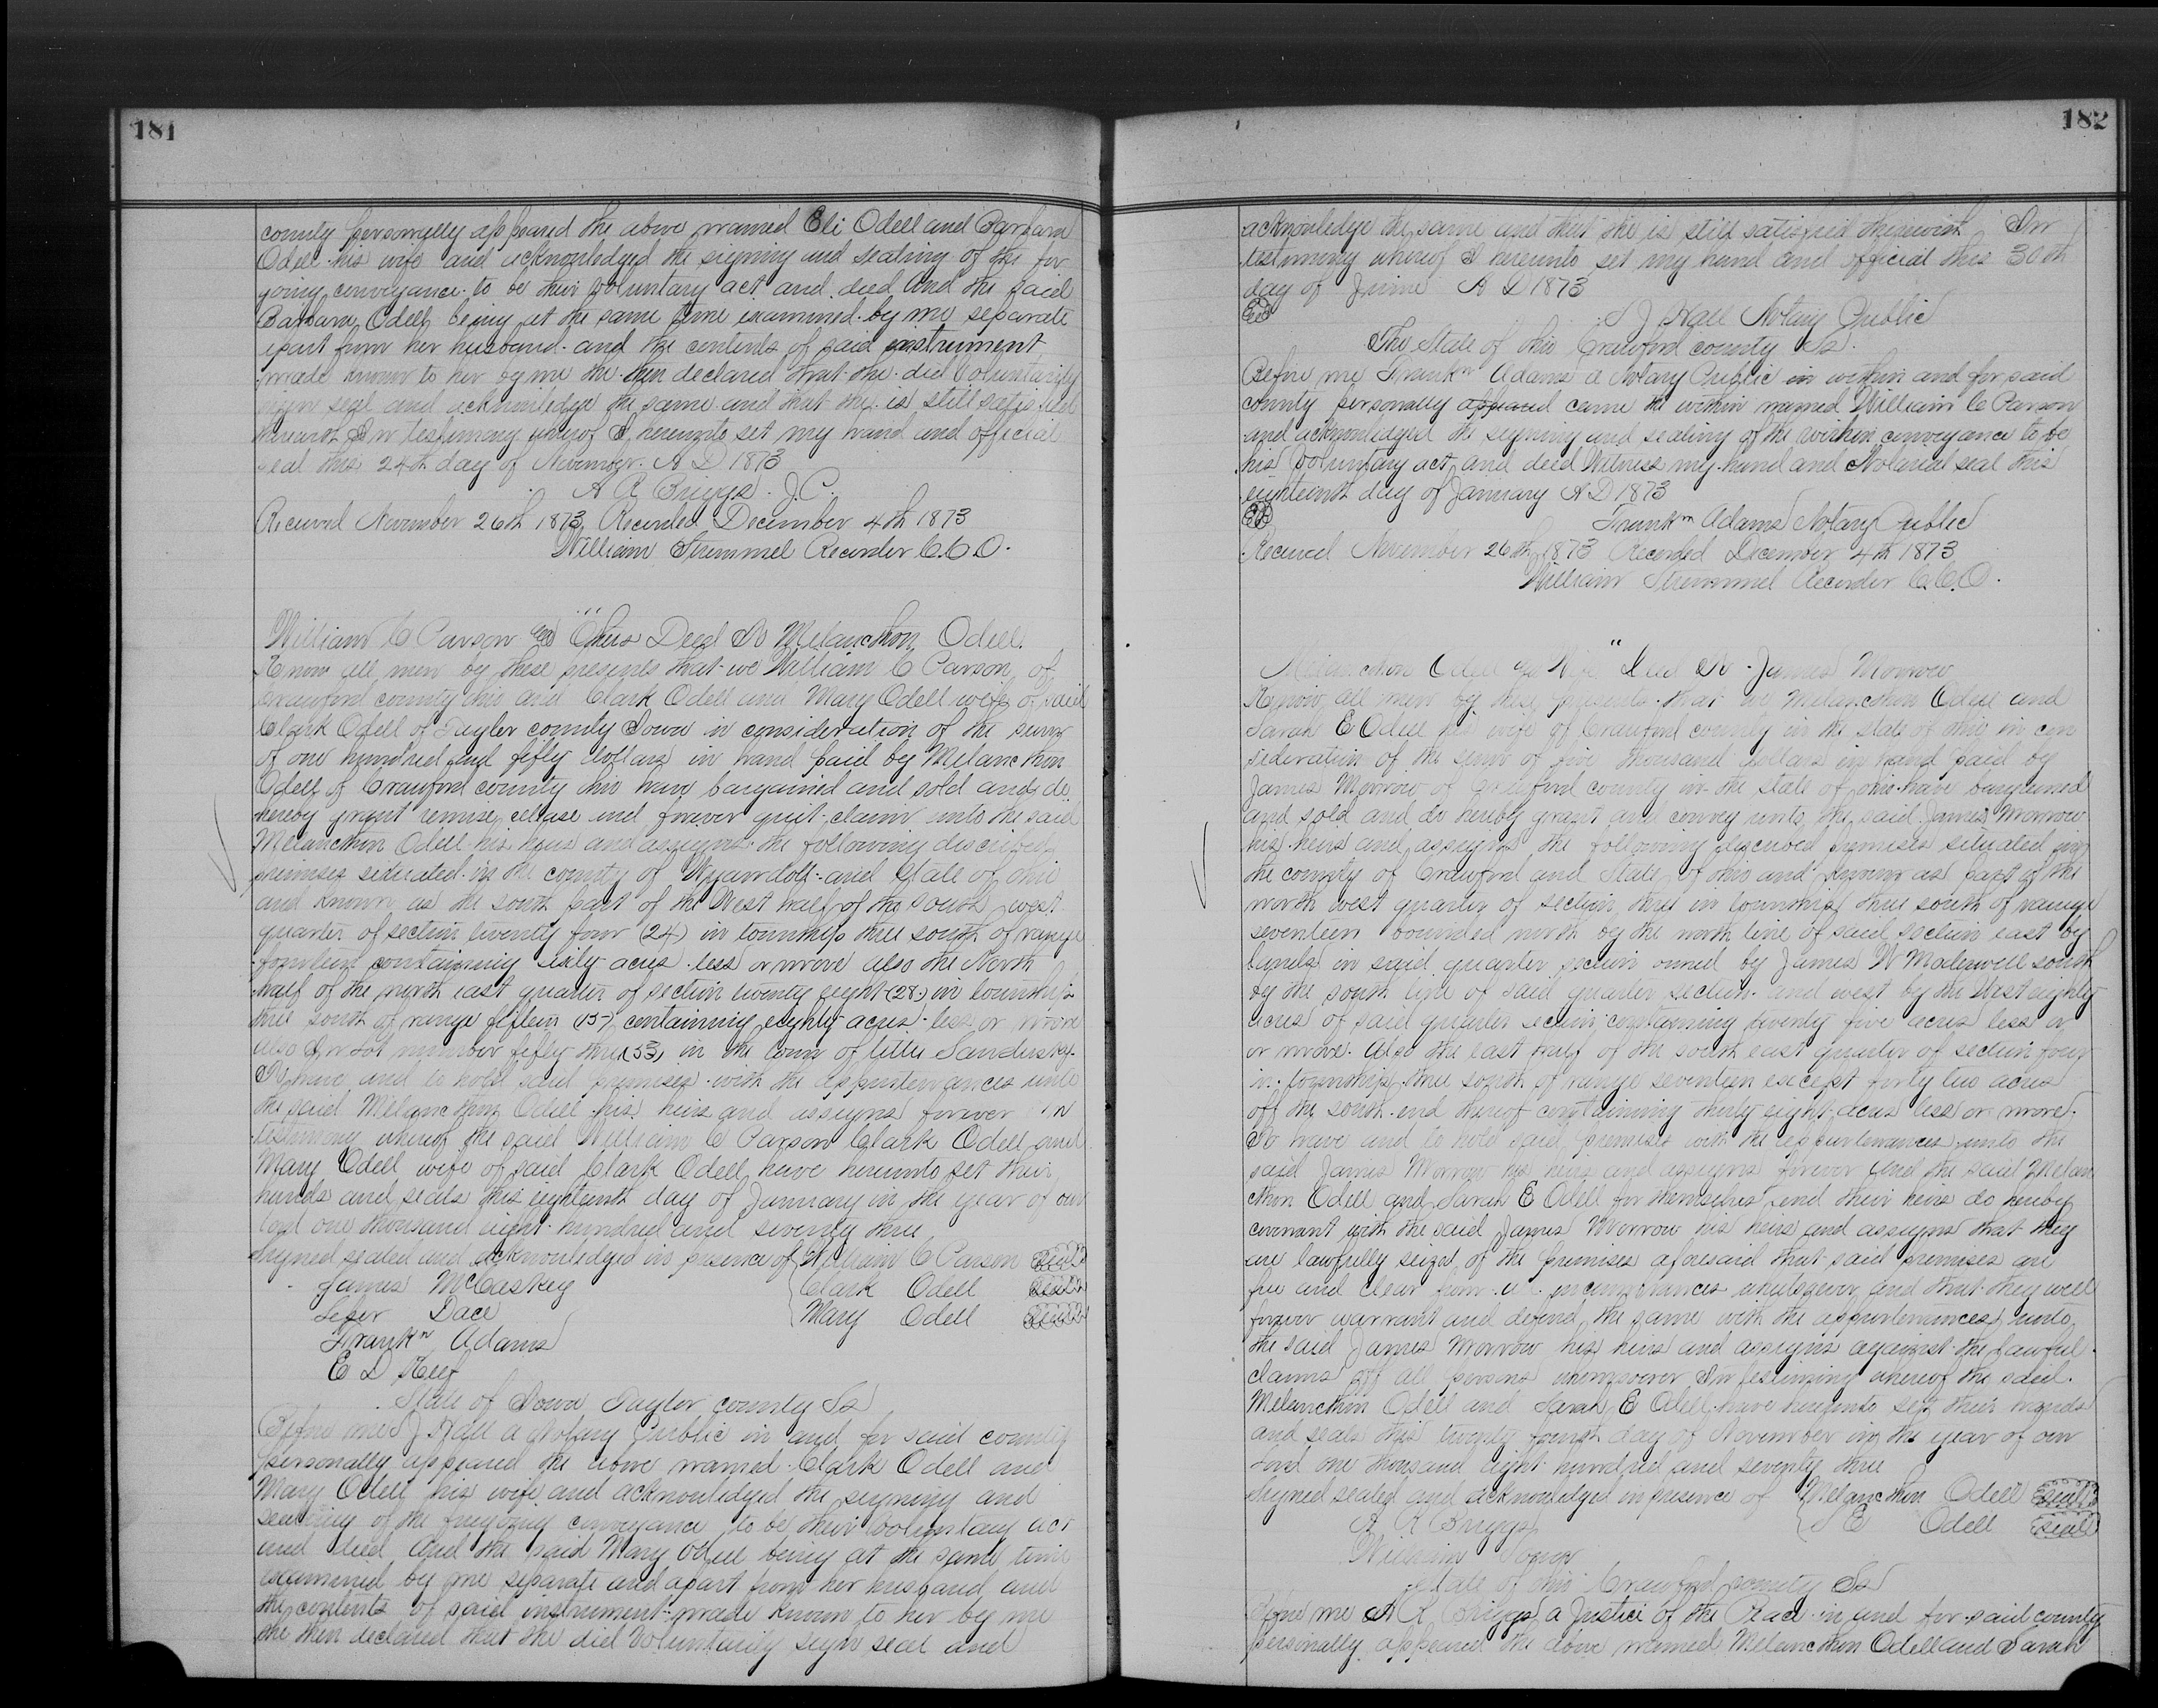 181
county personally appeared the above named Eli Odell and Barbara
Odell his wife and acknowledged the signing and sealing of the for
going conveyance to be their voluntary act and deed And the said
Barbara Odell being at the same time examined by me separate
apart from her husband and the contents of said instrument
made known to her by me she then declared that she did voluntarily
sign seal and acknowledge the same and that she is still satisfied
therewith In testimony whereof I hereunto set my hand and official
seal this 24th day of November A D 1873
A R Briggs J.P.
Received November 26th 1873 Recorded December 4th 1873
William Stremmel Recorder C.C.O.
William C Parson and Others Deed To Melancthon Odell
Know all men by these presents that we William C Parson of
Crawford county Ohio and Clark Odell and Mary Odell wife of said
Clark Odell of Taylor county Iowa in consideration of the sum
of one hundred and fifty dollars in hand paid by Melancthon
Odell of Crawford county Ohio have bargained and sold and do
hereby grant remise release and forever quit claim unto the said
Melancthon Odell his heirs and assigns the following described
premises situated in the county of Wyandott and State of Ohio
and known as the south part of the West half of the South west
quarter of section twenty four (24) in township three south of range
fourteen containing sixty acres less or more also the North
half of the north east quarter of section twenty eight (28) in township
three south of range fifteen (15) containing eighty acres less or more
also In Lot number fifty three (53) in the town of little Sandusky
To have and to hold said premises with the appurtenances unto
the said Melancthon Odell his heirs and assigns forever In
testimony whereof the said William C Parson Clark Odell and
Mary Odell wife of said Clark Odell have hereunto set their
hands and seals this eighteenth day of January in the year of our
Lord one thousand eight hundred and seventy three
Signed sealed and acknowledged in presence of William C Parson Seal
James McCaskey Clark Odell Seal
Dace Mary Odell Seal
Frankn Adams
E D Keef
State of Iowa Taylor county Ss
Before me S J Hall a Notary Public in and for said county
personally appeared the above named Clark Odell and
Mary Odell his wife and acknowledged the signing and
sealing of the foregoing conveyance to be their voluntary act
and deed And the said Mary Odell being at the same time
examined by me separate and apart from her husband and
the contents of said instrument made known to her by me
she then declared that she did voluntarily sign seal and
182
acknowledge the same and that she is still satisfied therewith In
testimony whereof I hereunto set my hand and official this 30th
day of June A D 1873
S J Hall Notary Public
The State of Ohio Crawford county Ss
Before me Frankn Adams a Notary Public in within and for said
county personally appeared came the within named William C Parson
and acknowledged the signing and sealing of the within conveyance to be
his voluntary act and deed Witness my hand and Notarial seal this
eighteenth day of January A D 1873
Frankn Adams Notary Public
Received November 26th 1873 Recorded December 4th 1873
William Stremmel Recorder C.C.O.
Melancthon Odell and Wife Deed To James Morrow
Know all men by these presents that we Melancthon Odell and
Sarah E Odell his wife of Crawford county in the state of Ohio in con
sideration of the sum of five thousand dollars in hand paid by
James Morrow of Crawford county in the state of Ohio have bargained
and sold and do hereby grant and convey unto the said James Morrow
his heirs and assigns the following described premises situated in
the county of Crawford and State of Ohio and known as part of the
north west quarter of section three in township three south of range
seventeen bounded north by the north line of said section east by
lands in said quarter section owned by James W south
by the south line of said quarter section and west by the West eighty
acres of said quarter section containing twenty five acres less or
or more. Also the east half of the south east quarter of section four
in township three south of range seventeen except forty two acres
off the south end thereof containing thirty eight acres less or more.
To have and to hold said premises with the appurtenances unto the
said James Morrow his heirs and assigns forever And the said Melan
cthon Odell and Sarah E Odell for themselves and their heirs do hereby
covenant with the said James Morrow his heirs and assigns that they
are lawfully seized of the premises aforesaid that said premises are
free and clear from all incumbrances whatsoever and that they will
forever warrant and defend the same with the appurtenances unto
the said James Morrow his heirs and assigns against the lawful
claims of all persons whomsoever In testimony whereof the said
Melancthon Odell and Sarah E Odell have hereunto set their hands
and seals this twenty fourth day of November in the year of our
Lord one thousand eight hundred and seventy three
Signed sealed and acknowledged in presence of Melancthon Odell seal
A R Briggs S E Odell seal
William
State of Ohio Crawford county Ss
Before me A R Briggs a Justice of the Peace in and for said county
personally appeared the above named Melancthon Odell and Sarah